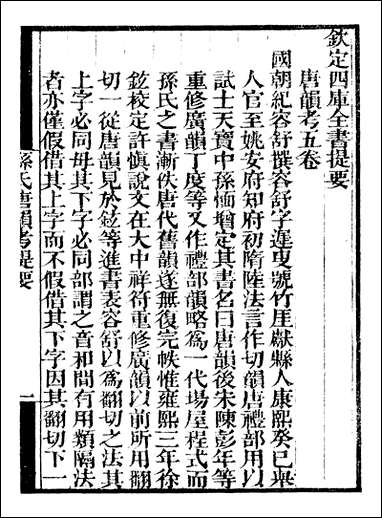 欽定四庫全書提要
唐韻考五卷
國朝紀容舒撰容舒字遲叟號竹厓獻縣人康熙癸巳舉
人官至姚安府知府初隋陸法言作切韻唐禮部用以
試士天寶中孫愐增定其書名曰唐韻後宋陳彭年等
重修廣韻丁度等又作禮部韻略爲一代場屋程式而
孫氏之書漸佚唐代舊韻遂無復完帙惟雍熙三年徐
鉉校定許慎說文在大中祥符重修廣韻以前所用翻
切一從唐韻見於鉉等進書表容舒以爲翻切之法其
上字必同母其下字必同部謂之音和間有用類隔法
者亦僅假借其上字而不假借其下字因其翻切下一
孫氏唐韻考提要
一